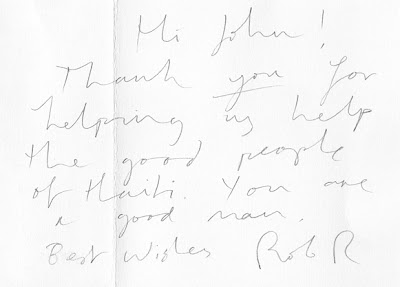 Hi John!
Thank you for
helping us help
the good people
of Haiti. You are
a good man.
Best Wishes Rob R